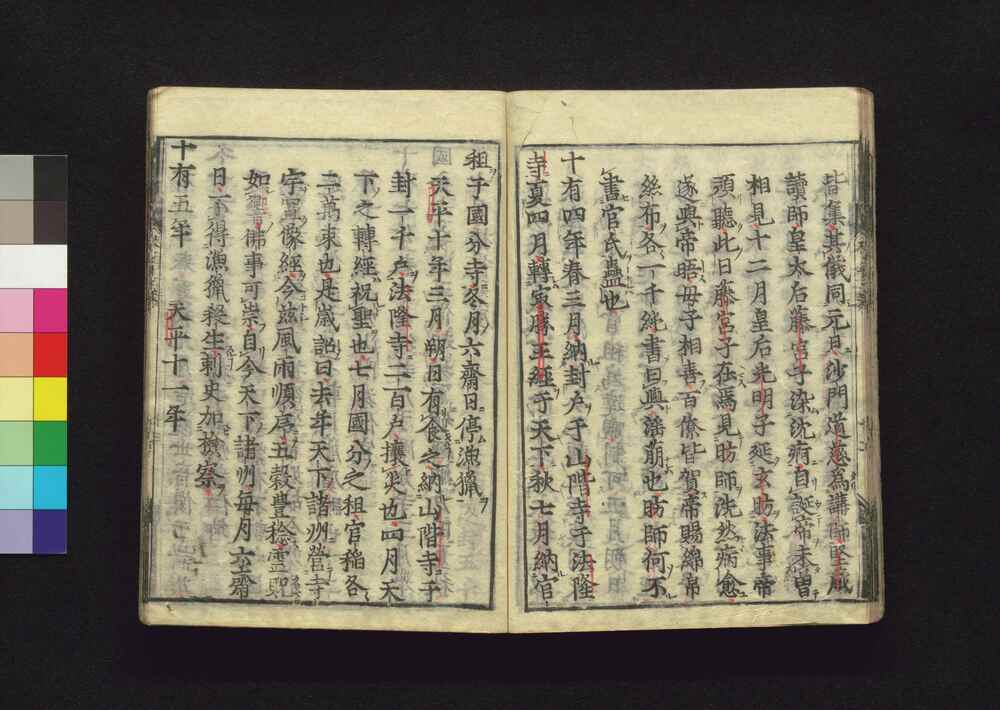 皆集其儀同元日沙門道慈為講師堅蔵
讀師皇太后藤宮子染沈痾自誕帝未曽
相見十二月皇后光明子延玄昉法事帝
頭聽此日藤宮子在焉見昉師洗然病愈
遂與帝晤母子相喜百僚皆賀帝賜綿帛
絲布各一千絁書曰與藩萠也昉師何不
書官氏蠱也
十有四年春三月納封戸于山階寺于法隆
寺夏四月轉寅勝王經于天下秋七月納官
租于國分寺冬月六齋日停漁獵
天平十年三月朔日有食之納山階寺于
封一千戸法隆寺二百戸攘災也四月天
下之轉經祝聖也七月國分之租官稲各
二萬束也是歳詔曰去年天下諸州營寺
宇置像經今茲風雨順序五穀豊稔霊貺
如聖佛事可崇自今天下諸州毎月六齋
日不得漁獵殺生刺史加撿察
十有五年 天平十一年